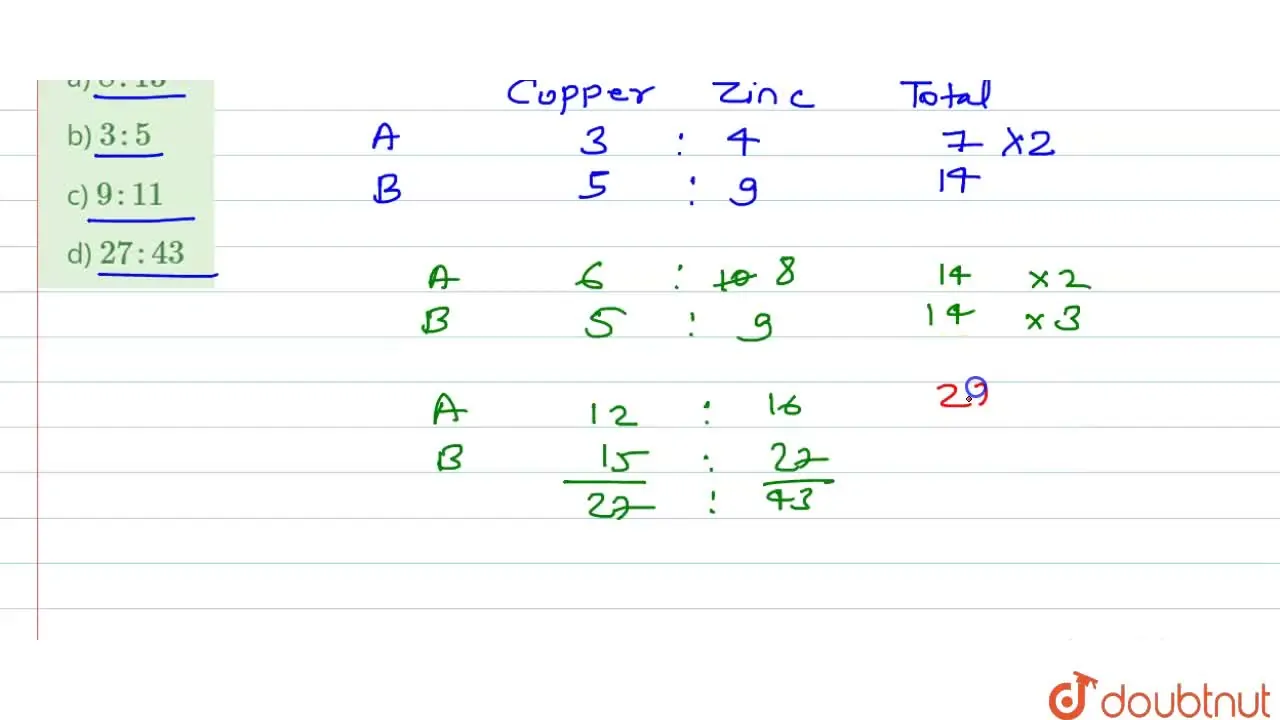 Copper Zinc Total
A 3 : 4 7 ×2
b) 3 : 5
B 5 : 9 14
c) 9 : 11
d) 27 : 43
A 6 : 10 8 14 ×2
B 5 : 9 14 ×3
A 12 : 16
B 15 : 27
27 : 43
doubtnut